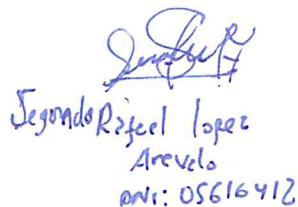 Segundo Rafael lopez
Arevalo
DNI: 05616412